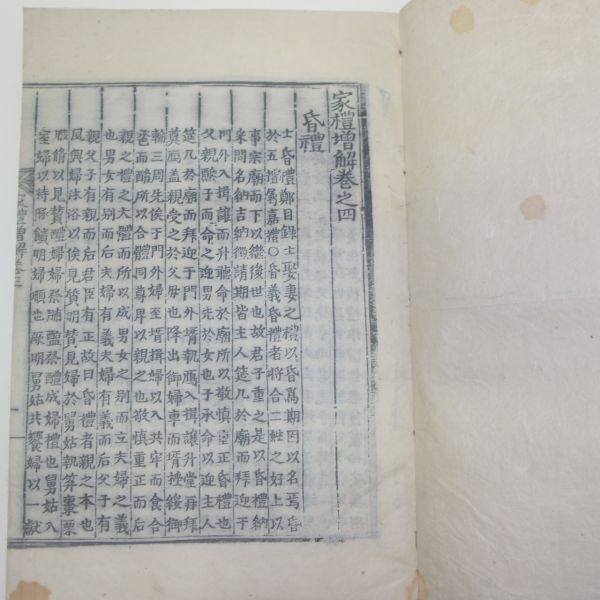 家禮增解卷之四
昏禮
士昏禮鄭目録士娶妻之禮以昏爲期因以名焉昏
於五禮屬嘉禮○昏義昏禮者將合二姓之好上以
事宗廟而下以繼後世也故君子重之是以昏禮納
采問名納吉納徵請期皆主人筵几於廟而拜迎于
門外入揖讓而升聽命於廟所以敬愼重正昏禮也
父親醮子而命之迎男先於女也子承命以迎主人
筵几於廟而拜迎于門外壻執鴈入揖讓升堂再拜
奠鴈盖親受之於父母也降出御婦車而壻授綏御
輪三周先俟于門外婦至壻揖婦以入共牢而食合
巹而酳所以合體同尊卑以親之也敬愼重正而后
親之禮之大體而所以成男女之别而立夫婦之義
也男女有别而后夫婦有義夫婦有義而后父子有
親父子有親而后君臣有正故曰昏禮者禮之本也
夙興婦沐浴以俟見質明賛見婦於舅姑執笲棗栗
腶脩以見賛醴婦婦祭脯醢祭醴成婦禮也舅姑入
室婦以特豚饋明婦順也厥明舅姑共饗婦以一獻
家禮增解卷三